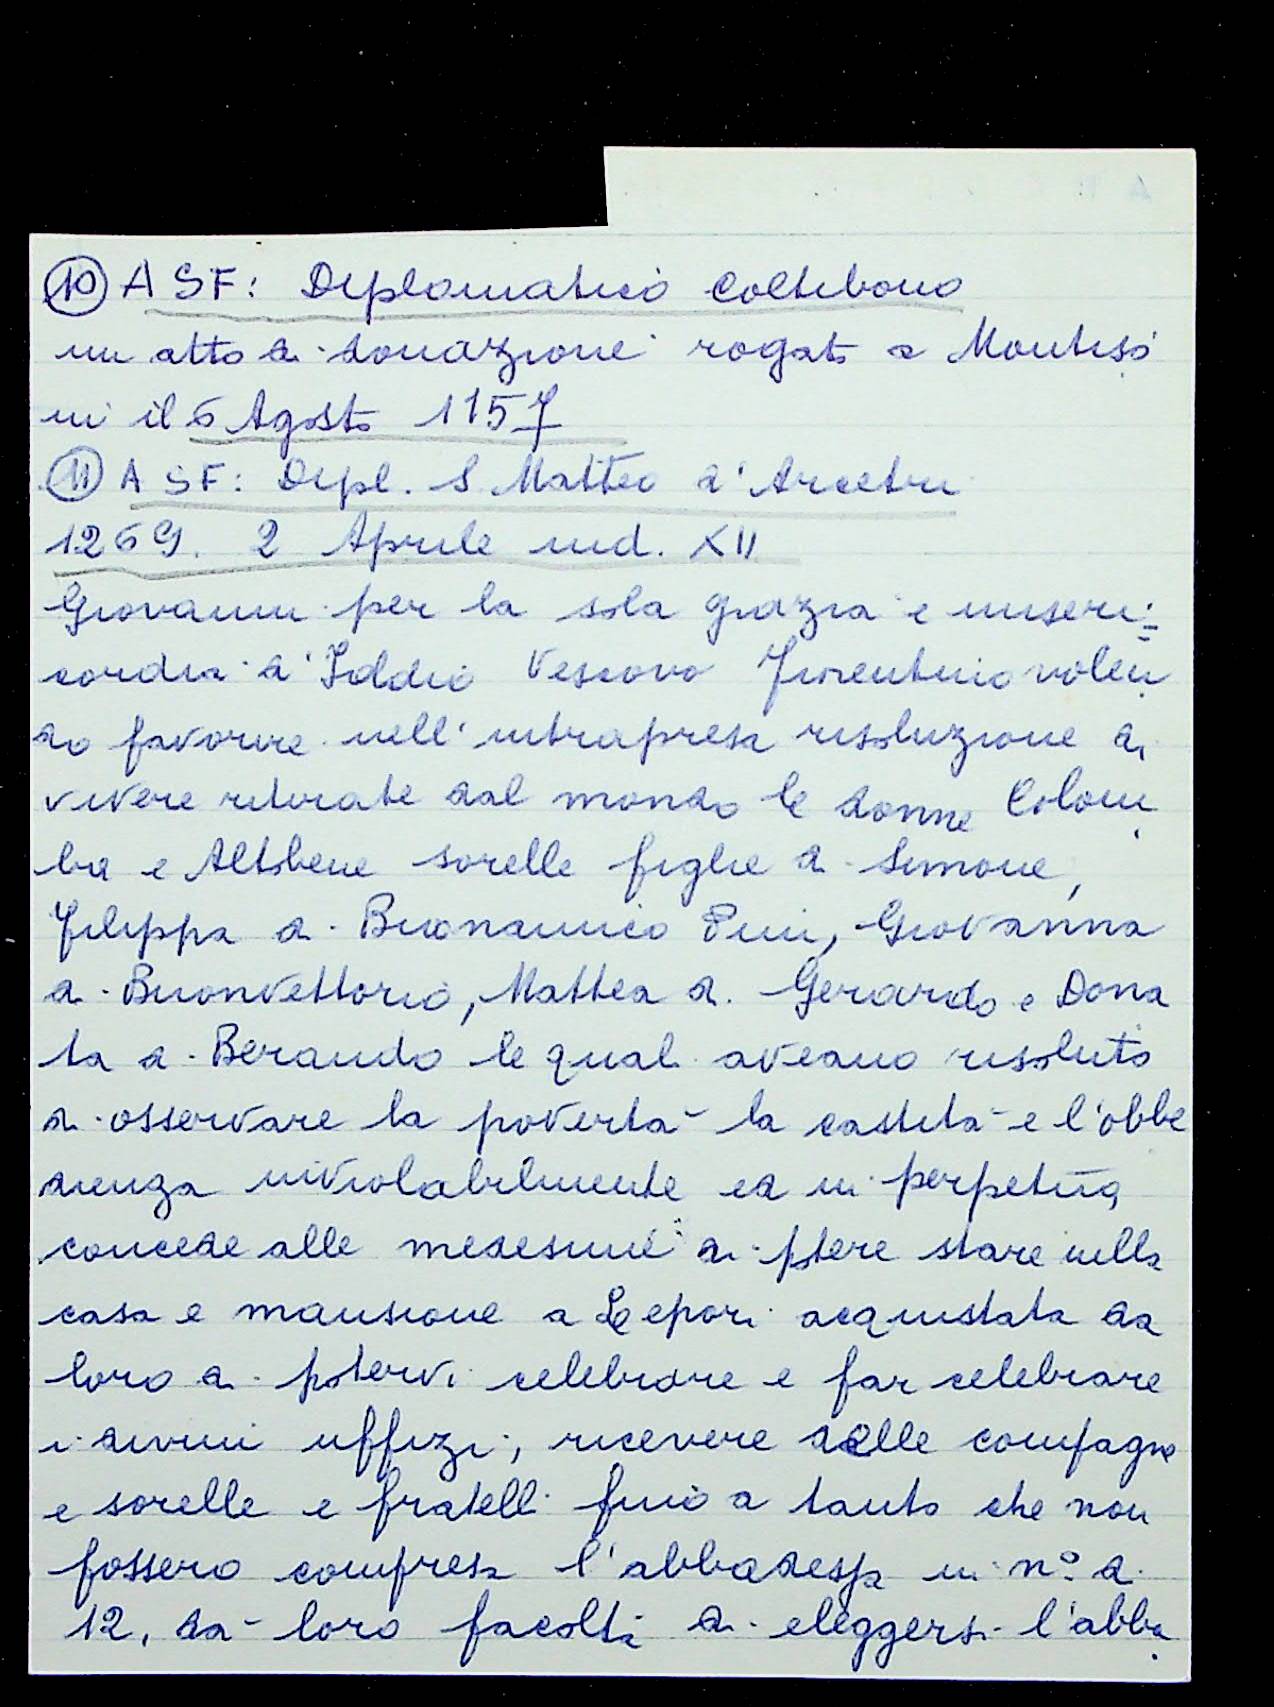 10 ASF: Diplomatico Coltibono
un atto di donazione rogato a Montiso
ni il 6 Agosto 1157
11 ASF: Dipl. S. Matteo d'Arcetri
1269. 2 Aprile ind. XII
Giovanni per la sola grazia e miseri=
cordia d'Iddio Vescovo Fiorentino volen
do favorire nell'intrapresa risoluzione di
vivere ritirate dal mondo le donne Colom
ba e Altobene sorelle figlie di Simone,
Filippa di Buonamico Pini, Giovanna
di Buonvettorio, Mattea di Gerardo e Dona
ta di Berando le quali aveano risoluto
di osservare la povertà la castità e l'obbe
dienza inviolabilmente ed in perpetuo,
concede alle medesime di potere stare nella
casa e mansione a Lepori acquistata da
loro di potervi celebrare e far celebrare
i divini uffizi, ricevere delle compagne
e sorelle e fratelli fino a tanto che non
fossero compresa l'abbadessa in n.º di
12, dà loro facoltà di eleggersi l'abba